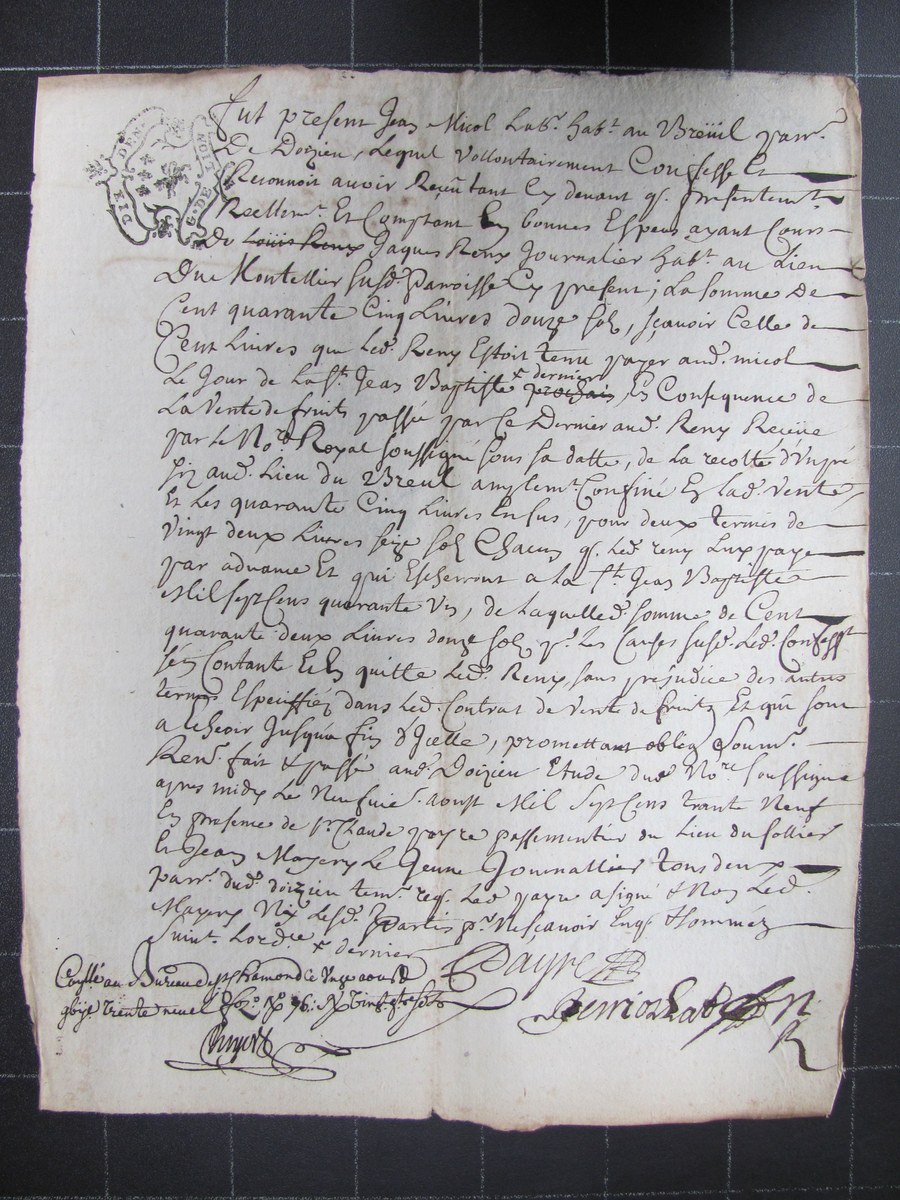 DIX DEN
G. DE LION
fut present Jean Nicol Lab.r hab.t au Breüil parr.
De Doizieu, Lequel Vollontairement Confesse Et
Reconnoit auoir Reçeu tant Cy deuant q. presentem.t
Reellem.t Et Comptant En bonnes Especs ayant Cours
De Louis Reny Jaques Reny Journalier hab.t au Lieu
Due Montellier susd. Parroisse Cy present; La somme De
Cent quarante Cinq Liures douze sols, sçauoir Celle de
Cent Liures que Led. Reny Estoit tenu payer aud. nicol
Le Jour de La S.t Jean Baptiste x dernier prochain, En Consequence de
La Vente de fruits passée par Ce Dernier aud. Reny Receüe
par Le No.re Royal soussigné sous sa datte, de La recolte d'Un pré
siz aud. Lieu du Breuil amplem.t Confiné En Lad. Vente,
Et Les quarante Cinq Liures En sus, pour deux termes de
Vingt deux Liures seize sols Chacun q. Led. reny Luy paye
par aduance Et qui Escherront a La S.t Jean Baptiste
Mil sept Cens quarante Un, de Laquelle d. somme de Cent
quarante deux Liures douze sols p.r Les Causes susd. Led. Confess.t
s'en Contante Et En quitte Led. Reny, sans préjudice des autres
termes Especiffiéz dans Led. Contrat de Vente de fruits Et qui sont
a Echeoir Jusqu'a fin d'Icelle, promettant oblig. Soum.
Ren. fait & passé aud. Doizieu Etude due No.re soussigné
apres midy Le Neufuie. aoust Mil Sept Cens trante Neuf
En presence de s.r Claude payre passementier du Lieu du sollier
Et Jean Mayery Le Jeune Journallier tous deux
parr. dud. doizieu tem. req. Led. payre a signé & Non Led.
Mayery Ny Lesd. Partis p.r Ne sçauoir Enq. & sommés
Suiu.t Lord.ce x dernier
Payre
Conllé au Bureau de s.t chamond Ce Unze aoust
gbije trente neuf f.o N.o 76. R. Vingt